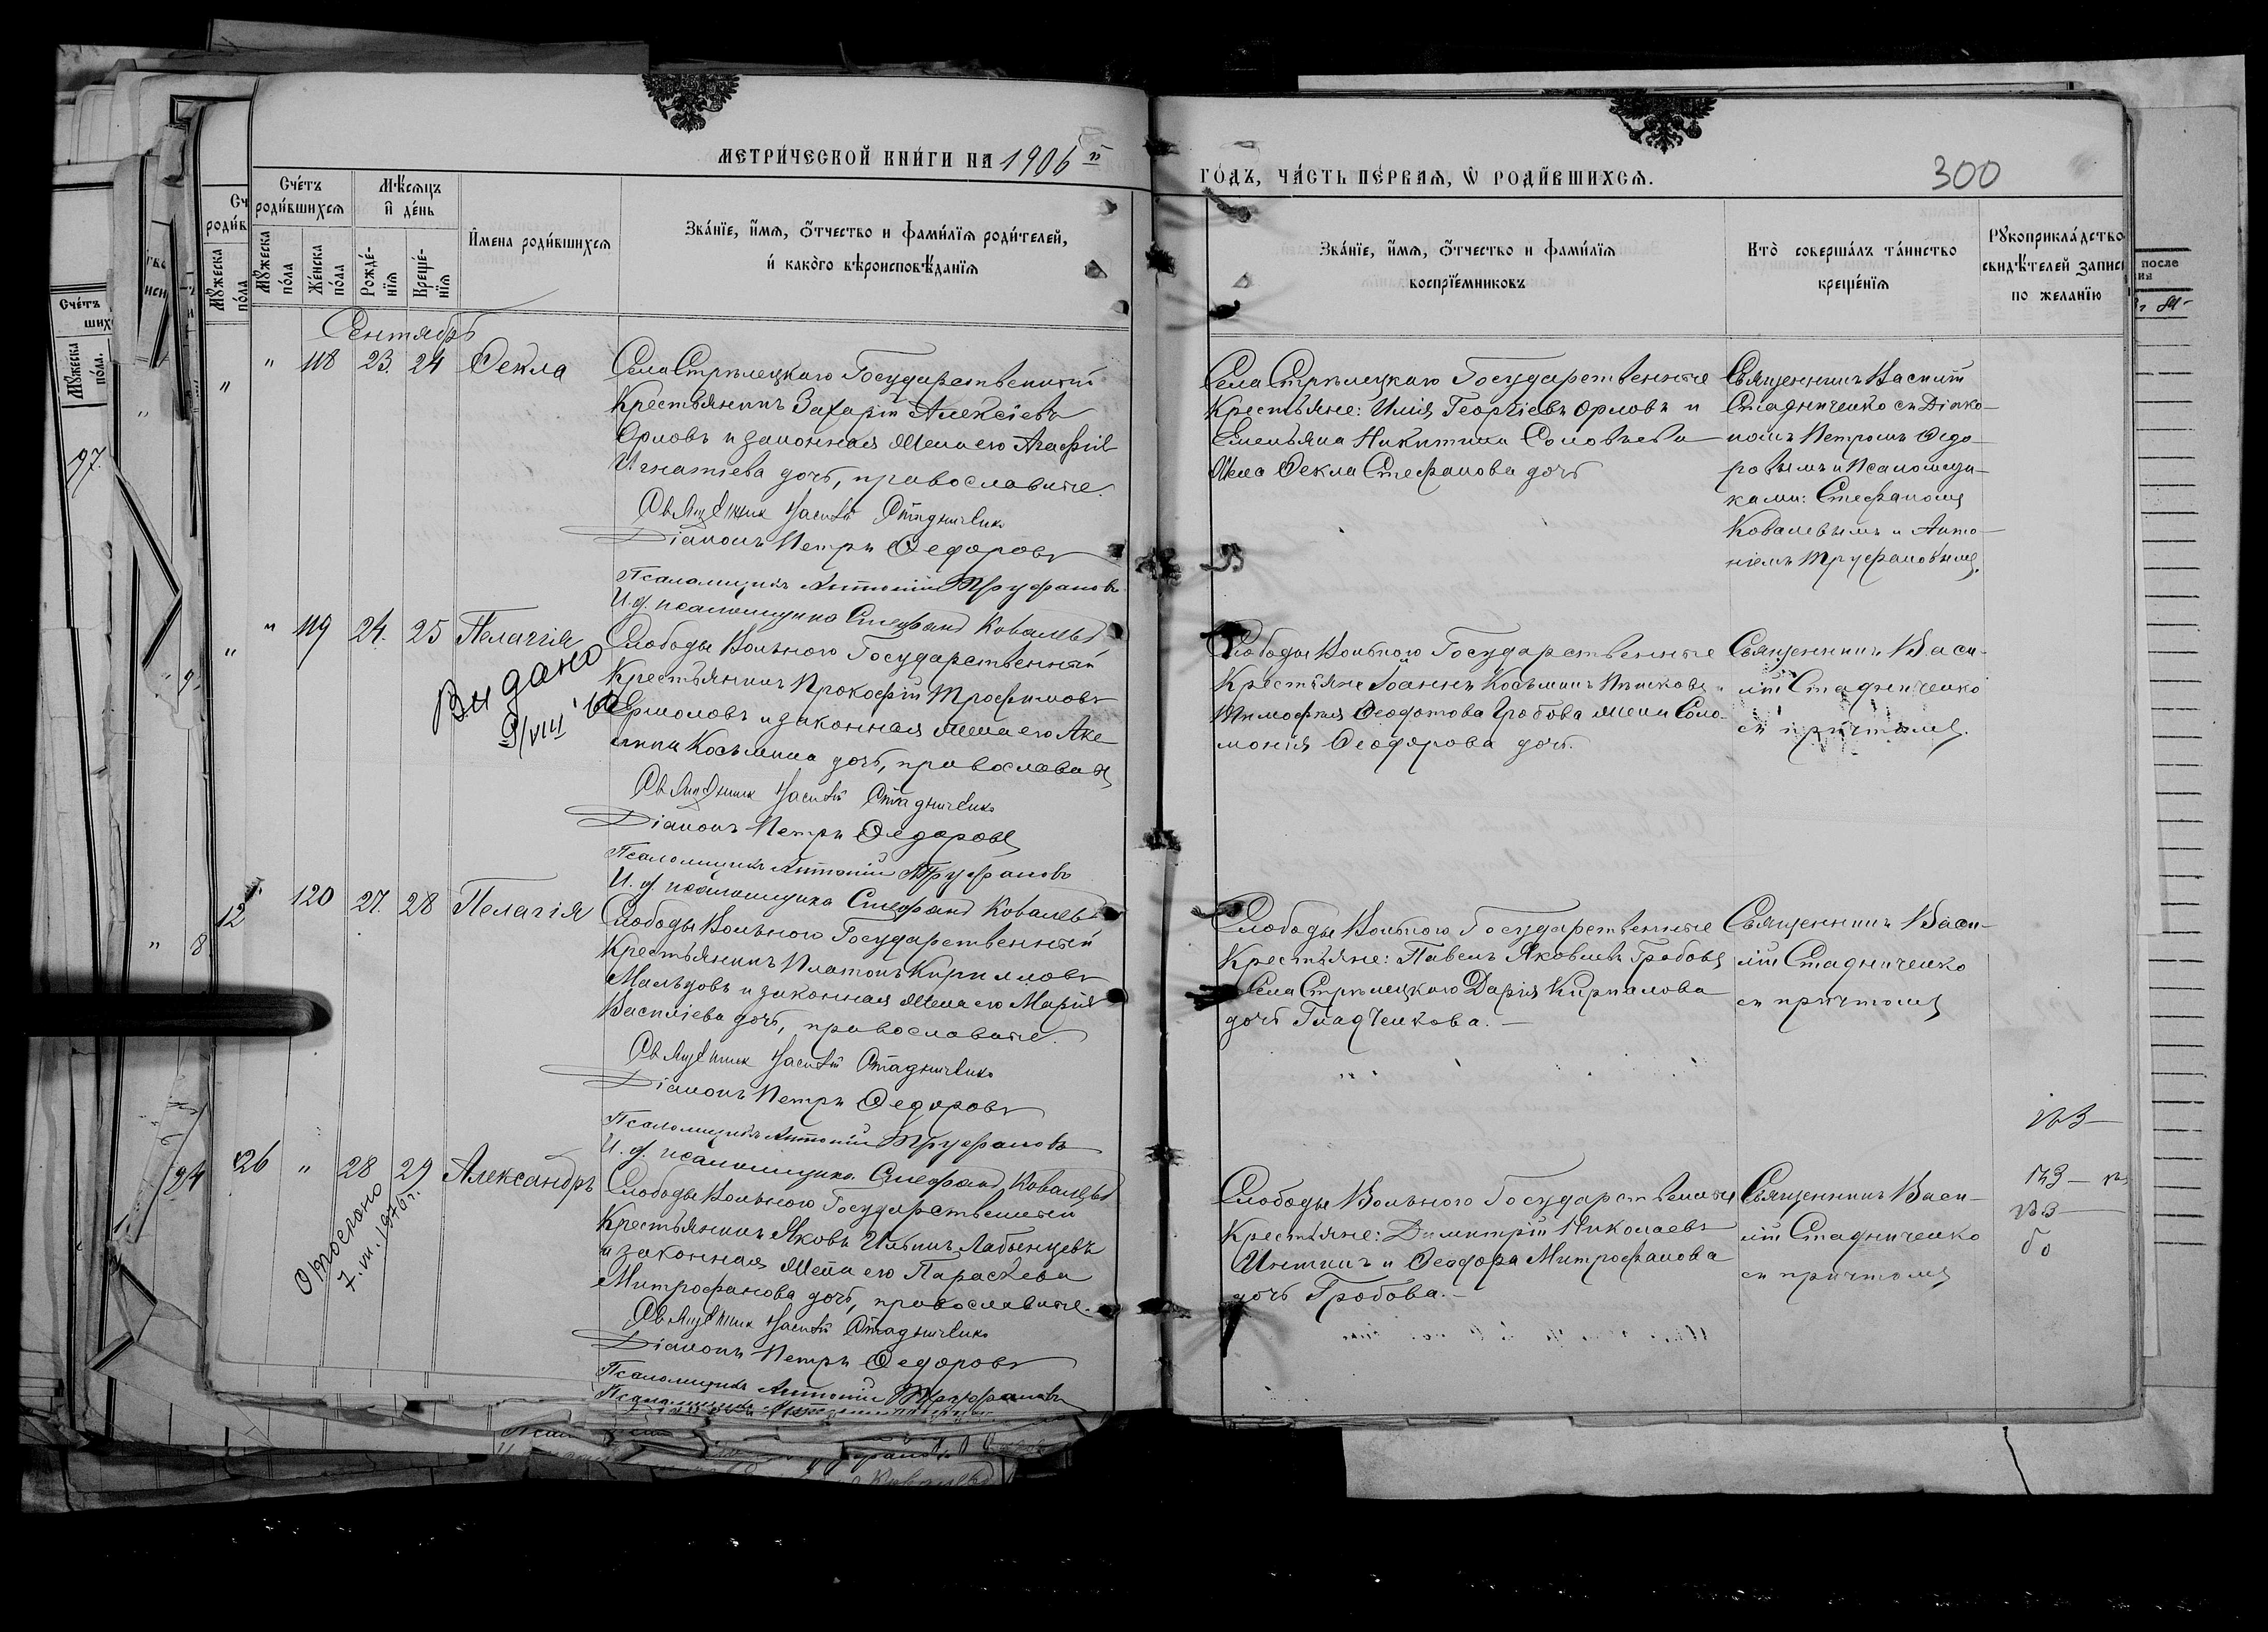 МЕТРИ́ЧЕСКОЙ КНИ́ГИ НА 1906 й
ГО́ДЪ, ЧА́СТЬ ПЕ́РВАЯ, Ѡ РОДИ́ВШИХСЯ.
300
Сче́тъ роди́вшихся
Мѣ́сяцъ и҆ де́нь
И҆мена роди́вшихся
Зва́нїе, и҆́мя, ѻ҆́тчество и фами́лїя роди́телей,
и҆ како́го вѣроисповѣ́данїя
Мꙋ́жеска по́ла
Же́нска по́ла
Рожде́нїя
Креще́нїя
Зва́нїе, и҆́мя, ѻ҆́тчество и фами́лїя
воспрїе́мниковъ
Кто̀ соверша́лъ та́инство
креще́нїя
Рꙋкоприкла́дство
свидѣ́телей записи
по жела́нїю
Сентябрь
" 118 23. 24 Ѳекла
Села Стрѣлецкаго Государственный
Крестьянинъ Захарій Алексіевъ
Орловъ и законная жена его Агафія
Игнатіева дочь, православные.
Священникъ Василій Стадниченко
Діаконъ Петръ Ѳедоровъ
Псаломщикъ Антоній Труфановъ
И. д. псаломщика Стефанъ Ковалевъ
Села Стрѣлецкаго Государственные
Крестьяне: Илія Георгіевъ Орловъ и
Емельяна Никитина Соловьева
жена Ѳекла Стефанова дочь
Священникъ Василій
Стадниченко съ Діако-
номъ Петромъ Ѳедо-
ровымъ и Псаломщи-
ками: Стефаномъ
Ковалевымъ и Анто-
ніемъ Труфановымъ.
" 119 24. 25 Пелагія
Видано
9/VIII '60
Слободы Вольного Государственный
Крестьянинъ Прокофій Трофимовъ
Ермоловъ и законная жена его Аке-
лина Косьмина дочь, православныя
Священникъ Василій Стадниченко
Діаконъ Петръ Ѳедоровъ
Псаломщикъ Антоній Труфановъ
И. д. псаломщика Стефанъ Ковалевъ
Слободы Вольного Государственные
Крестьяне Іоаннъ Косьминъ и
Тимофея Ѳеодотова Гробова жена Соло-
монія Ѳеодорова дочь.
Священникъ Васи-
лій Стадниченко
съ причтомъ.
120 27. 28 Пелагія
Слободы Вольного Государственный
Крестьянинъ Платонъ Кирилловъ
Мальцовъ и законная жена его Марія
Василіева дочь, православные.
Священникъ Василій Стадниченко
Діаконъ Петръ Ѳедоровъ
Псаломщикъ Антоній Труфановъ
И. д. псаломщика Стефанъ Ковалевъ
Слободы Вольного Государственные
Крестьяне: Павелъ Яковлевъ Гробовъ
Села Стрѣлецкаго Дарія Кириллова
дочь Гладченкова.
Священникъ Васи-
лій Стадниченко
съ причтомъ
26 " 28 29 Александръ
Отослано
7. VII. 1976 г.
Слободы Вольного Государственный
Крестьянинъ Яковъ Ильинъ Лабынцевъ
и законная жена его Параскева
Митрофанова дочь, православные.
Священникъ Василій Стадниченко
Діаконъ Петръ Ѳедоровъ
Псаломщикъ Антоній Труфановъ
Слободы Вольного Государственные
Крестьяне: Димитрій Николаевъ
и Ѳеодора Митрофанова
дочь Гробова.
Священникъ Васи-
лій Стадниченко
съ причтомъ